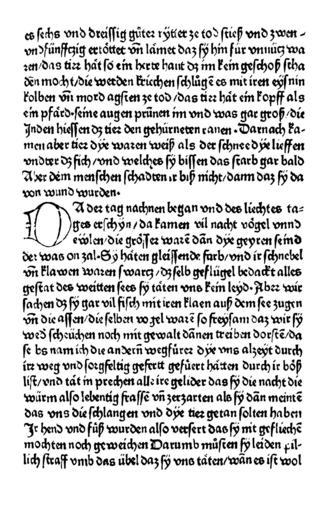 es sechs vnd dreissig gůter rytter ze tod stieß vnd zwen-
vndfünfftzig ertöttet vñ lamet daz sy hin für vnnütz wa
ren/das tier hat so ein herte haut dz im kein geschoß scha
den mocht/die werden kriechen schlůgẽ es mit iren eysnin
kolben vñ mord agsten ze tod/das tier hat ein kopff als
ein pfärd·seine augen prünen im vnd was gar groß/die
Inden hiessen dz tier den gehürneten ranen·Darnach ka-
men aber tier dÿe waren weiß als der schnee dÿe lieffen
vndter dz fich/vnd welches sy bissen das starb gar bald
Aber dem menschen schadten ir biß nicht/dann daz sy da
von wund wurden·
DA der tag nachnen began vnd des liechtes ta-
ges erschyn/da kamen vil nacht vögel vnnd
ewlen/die grösser warẽ dañ dÿe geyren seind
der was on zal·Sy häten gleissende farb/vnd ir schnebel
vñ klawen waren swartz/dz selb geflügel bedackt alles
gestat des weitten sees sy täten vns kein leyd·Aber wir
sachen dz sy gar vil fisch mit iren klaen auß dem see zugen
vñ die assen/die selben vogel warẽ so freysam daz wir sy
weder scheüchen noch mit gewalt dañen treiben dorstẽ/da
se bs nam ich die anderñ wegfürer dÿe vns alzeyt durch
irr weg vnd sorgfeltig gefertt gefüert hätten durch ir böß
list/vnd tät in prechen alle ire gelider das sy die nacht die
würm also lebentig frassẽ vñ zerzarten als sy dañ meintẽ
das vns die schlangen vnd dÿe tier getan solten haben
Ir hend vnd füß wurden also versert das sy nit gefliechẽ
mochten noch geweichen Darumb můsten sy leiden pil-
lich straff vmb das übel daz sy vns täten/wañ es ist wol